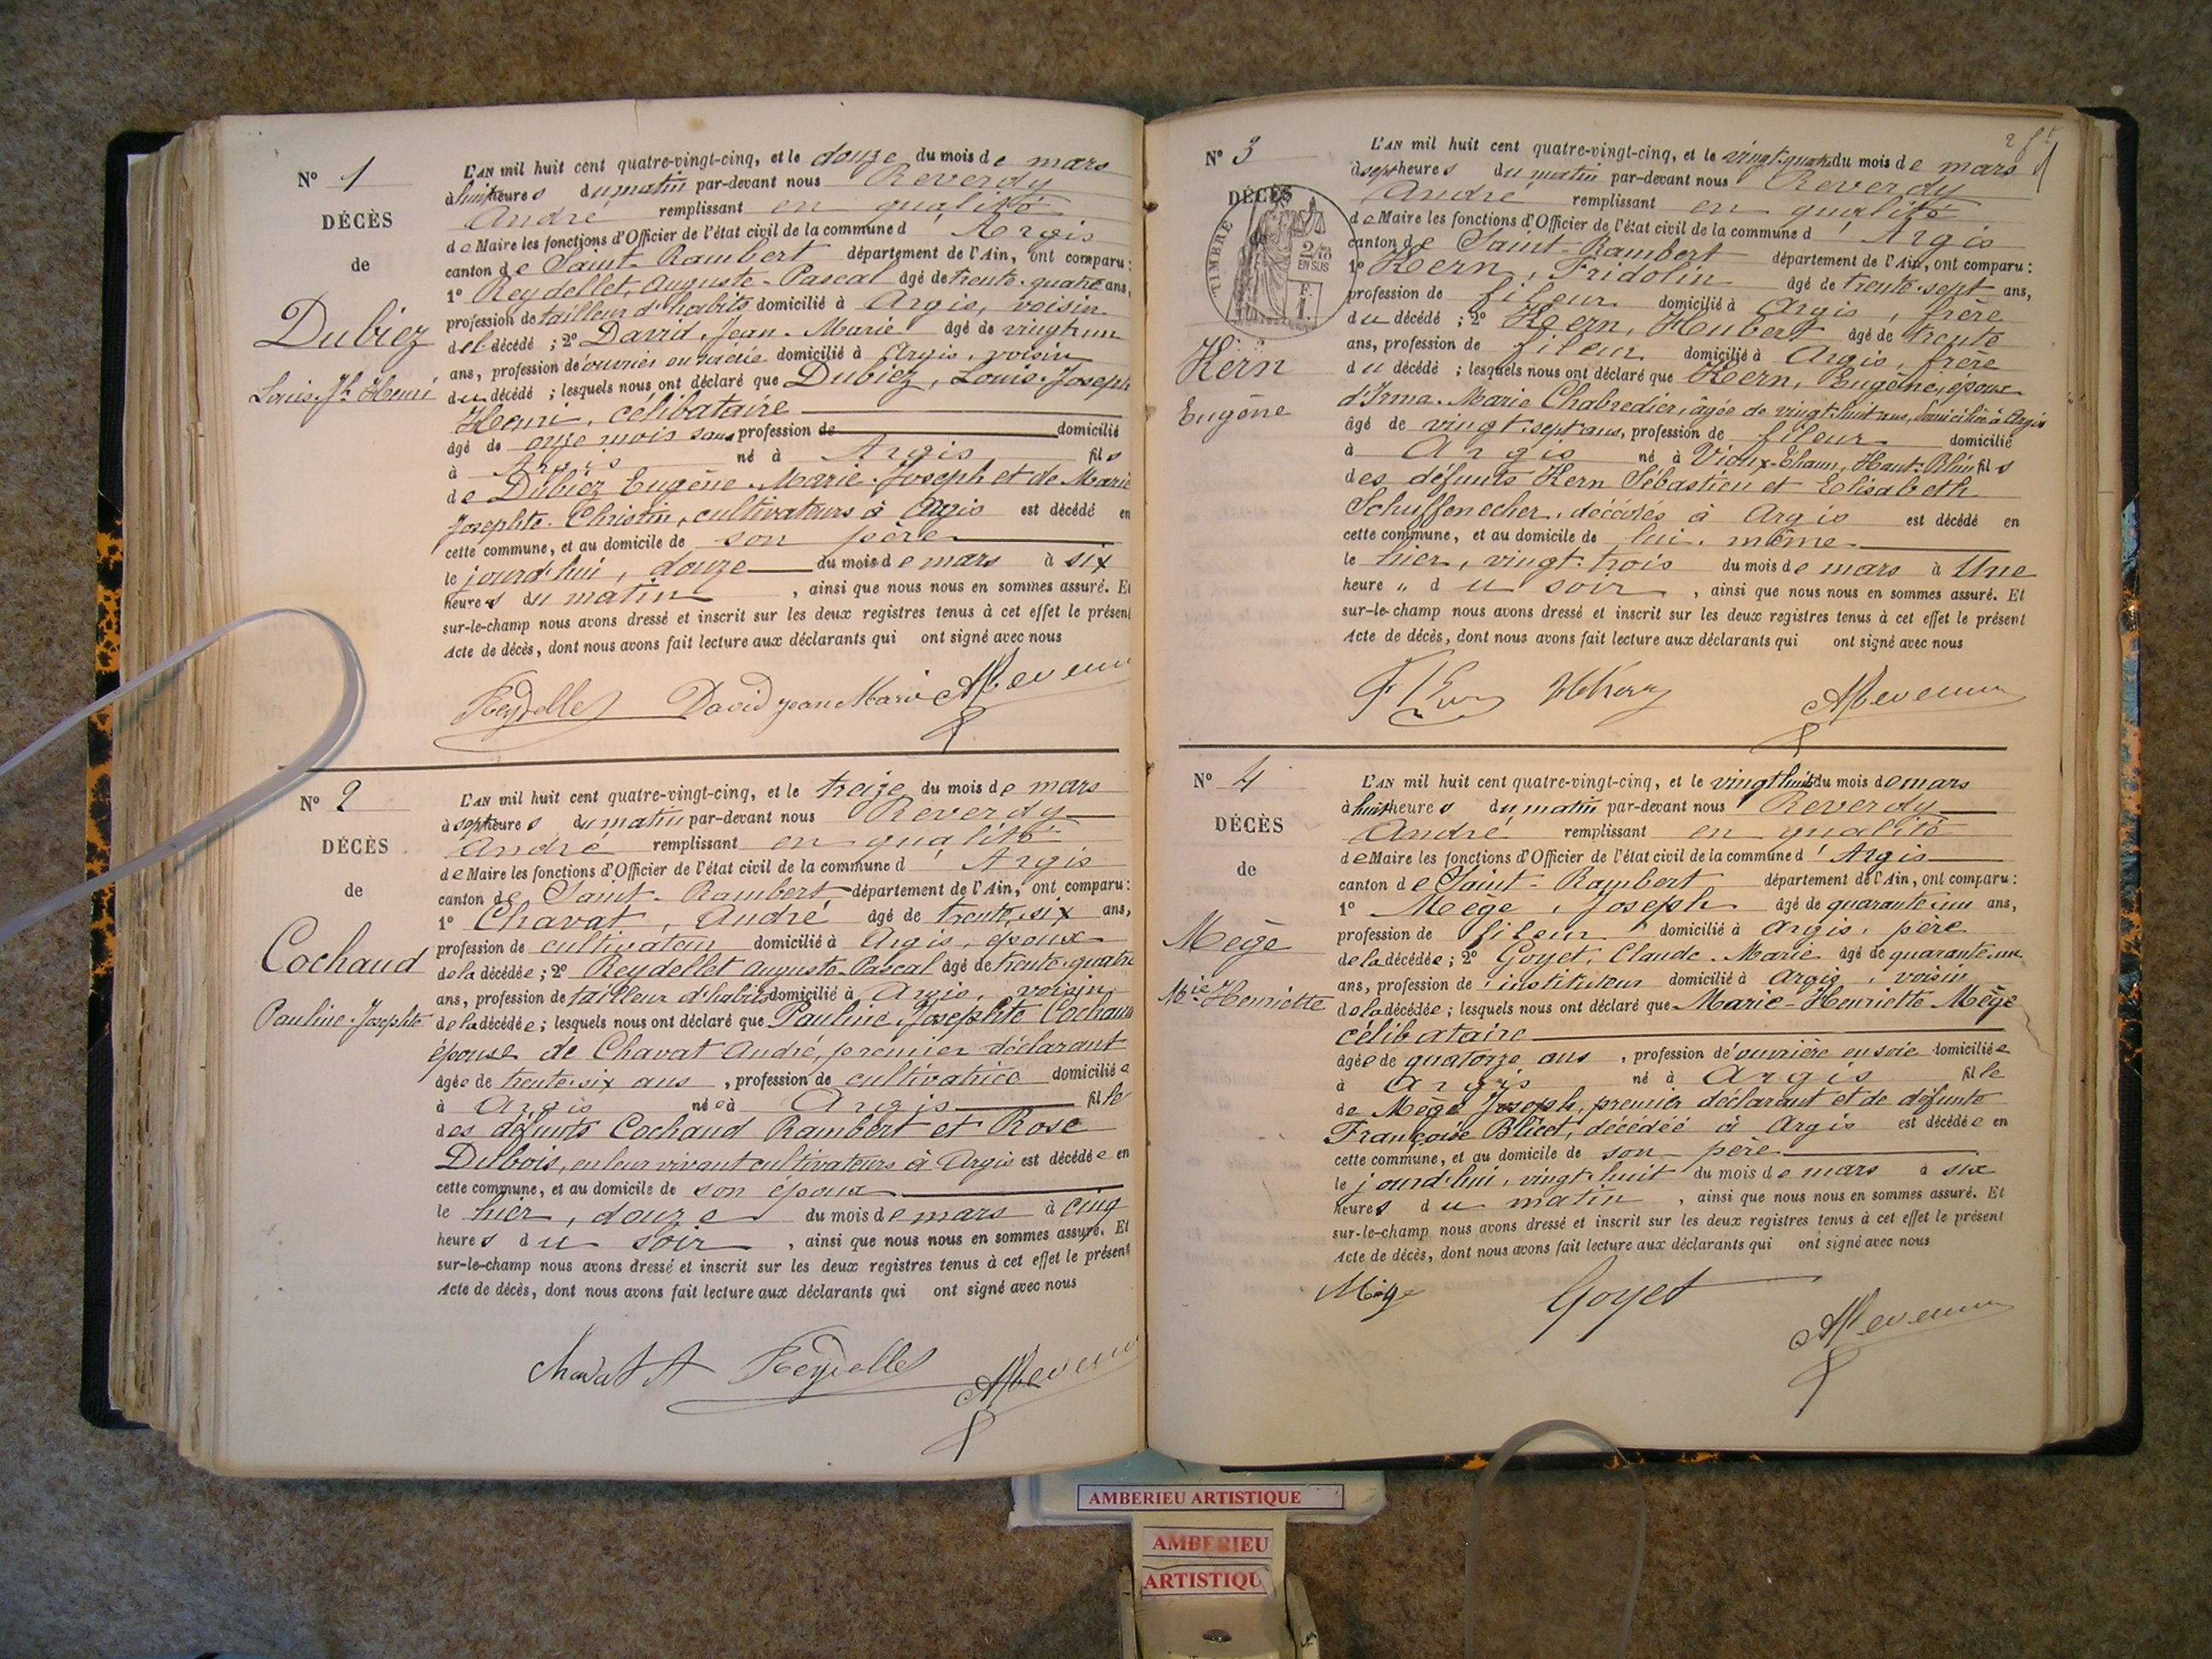 N° 1
DÉCÈS
de
Dubiez
Louis Jh Henri
L'AN mil huit cent quatre-vingt-cinq, et le douze du mois de mars
à huit heures du matin par-devant nous Reverdy
André remplissant en qualité
de Maire les fonctions d'Officier de l'état civil de la commune d'Argis
canton de Saint-Rambert département de l'Ain, ont comparu :
1° Reydellet, Auguste-Pascal âgé de trente-quatre ans,
profession de tailleur d'habits domicilié à Argis, voisin
del décédé ; 2° David, Jean-Marie âgé de vingt-un
ans, profession de ouvrier en soierie domicilié à Argis, voisin
du décédé ; lesquels nous ont déclaré que Dubiez, Louis-Joseph
Henri, célibataire
âgé de onze mois sans profession de domicilié
à Argis né à Argis fils
de Dubiez Eugène-Marie-Joseph et de Marie
Josephte Christin, cultivateurs à Argis est décédé en
cette commune, et au domicile de son père
le jourd'hui, douze du mois de mars à six
heures du matin, ainsi que nous nous en sommes assuré. Et
sur-le-champ nous avons dressé et inscrit sur les deux registres tenus à cet effet le présent
Acte de décès, dont nous avons fait lecture aux déclarants qui ont signé avec nous
Reydellet David jean Marie
N° 2
DÉCÈS
de
Cochaud
Pauline-Josephte
L'AN mil huit cent quatre-vingt-cinq, et le treize du mois de mars
à sept heures du matin par-devant nous Reverdy
André remplissant en qualité
de Maire les fonctions d'Officier de l'état civil de la commune d'Argis
canton de Saint-Rambert département de l'Ain, ont comparu :
1° Chavat, André âgé de trente-six ans,
profession de cultivateur domicilié à Argis, époux
de la décédée ; 2° Reydellet Auguste-Pascal âgé de trente-quatre
ans, profession de tailleur d'habits domicilié à Argis, voisin
de la décédée ; lesquels nous ont déclaré que Pauline Josephte Cochaud
épouse de Chavat André, premier déclarant
âgée de trente-six ans, profession de cultivatrice domiciliée
à Argis née à Argis fille
des défunts Cochaud Rambert et Rose
Dubois, en leur vivant cultivateurs à Argis est décédée en
cette commune, et au domicile de son époux
le hier, douze du mois de mars à cinq
heures du soir, ainsi que nous nous en sommes assuré. Et
sur-le-champ nous avons dressé et inscrit sur les deux registres tenus à cet effet le présent
Acte de décès, dont nous avons fait lecture aux déclarants qui ont signé avec nous
Chavat A Reydellet
N° 3
DÉCÈS
TIMBRE
2/10
EN SUS
Kern
Eugène
L'AN mil huit cent quatre-vingt-cinq, et le vingt-quatre du mois de mars
à sept heures du matin par-devant nous Reverdy
André remplissant en qualité
de Maire les fonctions d'Officier de l'état civil de la commune d'Argis
canton de Saint-Rambert département de l'Ain, ont comparu :
1° Kern, Fridolin âgé de trente-sept ans,
profession de fileur domicilié à Argis, frère
du décédé ; 2° Kern, Hubert âgé de trente
ans, profession de fileur domicilié à Argis, frère
du décédé ; lesquels nous ont déclaré que Kern, Eugène, époux
d'Irma-Marie Chabredier, âgée de vingt-huit ans, domiciliée à Argis
âgé de vingt-sept ans, profession de fileur domicilié
à Argis né à Vieux-Thann, Haut-Rhin fils
des défunts Kern Sébastien et Elisabeth
Schuffenecher, décédés à Argis est décédé en
cette commune, et au domicile de lui-même
le hier, vingt-trois du mois de mars à Une
heure " du soir, ainsi que nous nous en sommes assuré. Et
sur-le-champ nous avons dressé et inscrit sur les deux registres tenus à cet effet le présent
Acte de décès, dont nous avons fait lecture aux déclarants qui ont signé avec nous
F Kern H Kern
N° 4
DÉCÈS
de
Mège
Mie Henriette
L'AN mil huit cent quatre-vingt-cinq, et le vingt-huit du mois de mars
à huit heures du matin par-devant nous Reverdy
André remplissant en qualité
de Maire les fonctions d'Officier de l'état civil de la commune d'Argis
canton de Saint-Rambert département de l'Ain, ont comparu :
1° Mège, Joseph âgé de quarante-un ans,
profession de fileur domicilié à Argis, père
de la décédée ; 2° Goyet, Claude-Marie âgé de quarante-un
ans, profession d'instituteur domicilié à Argis, voisin
de la décédée ; lesquels nous ont déclaré que Marie-Henriette Mège
célibataire
âgée de quatorze ans, profession de ouvrière en soie domiciliée
à Argis né à Argis fille
de Mège Joseph, premier déclarant et de défunte
Françoise Blicet, décédée à Argis est décédée en
cette commune, et au domicile de son père
le jourd'hui, vingt-huit du mois de mars à six
heures du matin, ainsi que nous nous en sommes assuré. Et
sur-le-champ nous avons dressé et inscrit sur les deux registres tenus à cet effet le présent
Acte de décès, dont nous avons fait lecture aux déclarants qui ont signé avec nous
Mège Goyet
AMBERIEU ARTISTIQUE
AMBERIEU
ARTISTIQU